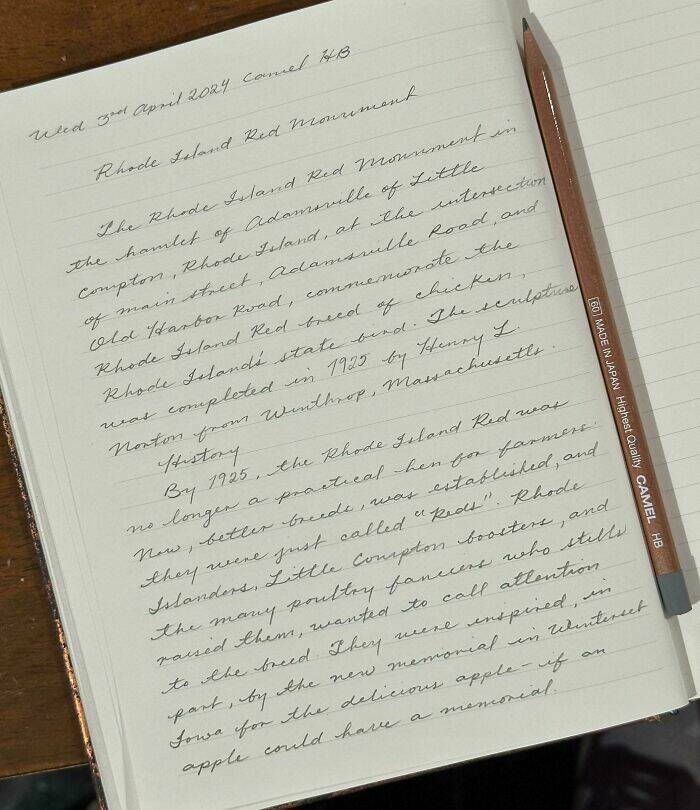 Wed 3rd April 2024 Camel HB
Rhode Island Red Monument
The Rhode Island Red Monument in
the hamlet of Adamsville of Little
Compton, Rhode Island, at the intersection
of main street, Adamsville Road, and
Old Harbor Road, commemorate the
Rhode Island Red breed of chicken,
Rhode Island's state bird. The sculpture
was completed in 1925 by Henry L.
Norton from Winthrop, Massachusetts.
History
By 1925, the Rhode Island Red was
no longer a practical hen for farmers.
New, better breeds, was established, and
they were just called "Reds". Rhode
Islanders, Little Compton boosters, and
the many poultry fanciers who stills
raised them, wanted to call attention
to the breed. They were inspired, in
part, by the new memorial in Winterset
Iowa for the delicious apple - if an
apple could have a memorial.
[60] MADE IN JAPAN Highest Quality CAMEL HB